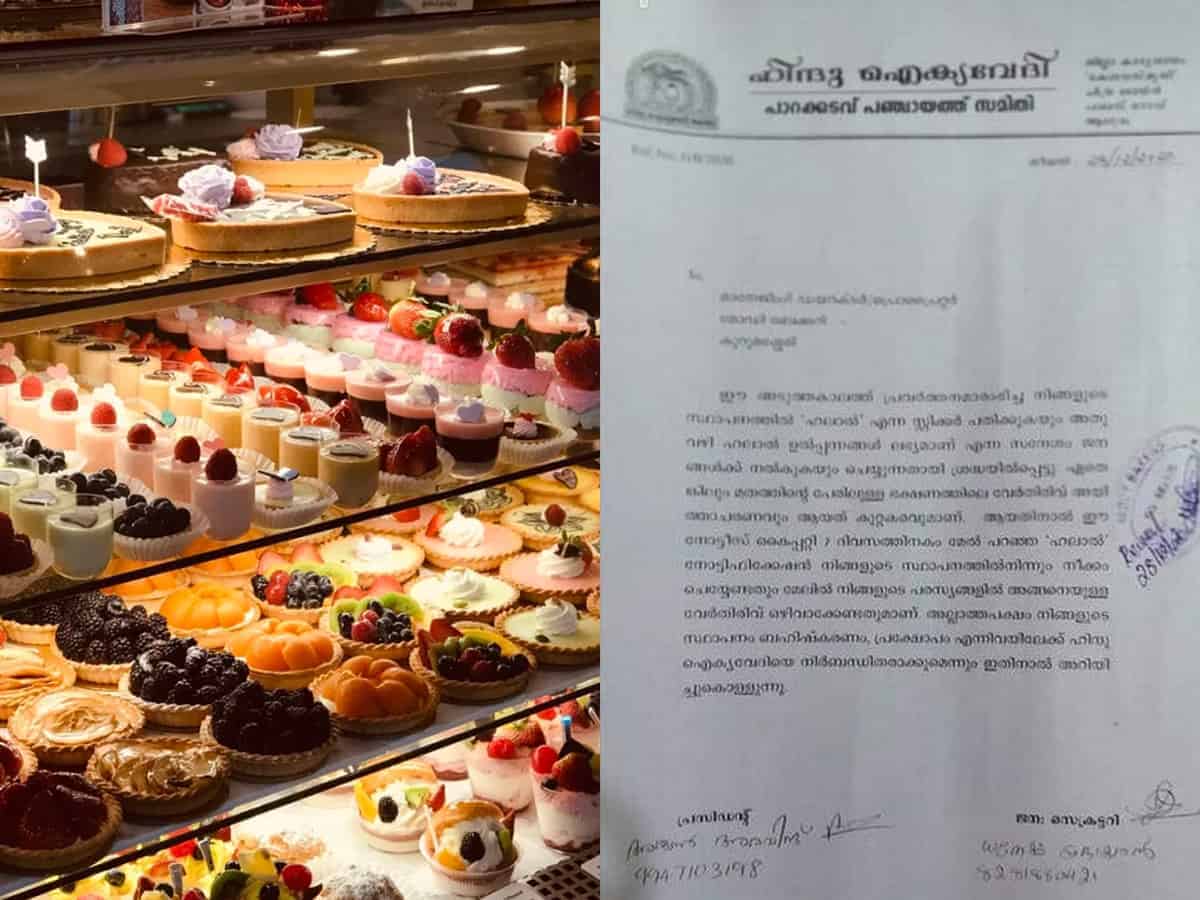 ഹിന്ദു ഐക്യവേദി
പാറക്കടവ് പഞ്ചായത്ത് സമിതി
ജില്ലാ കാര്യാലയം
ആലുവ
തീയതി 28/12/2020
To,
മാനേജിംഗ് ഡയറക്ടർ/പ്രൊപ്രൈറ്റർ
മോഡി ബേക്കറി
കുറുമശ്ശേരി
ഈ അടുത്തകാലത്ത് പ്രവർത്തനമാരംഭിച്ച നിങ്ങളുടെ
സ്ഥാപനത്തിൽ 'ഹലാൽ' എന്ന സ്റ്റിക്കർ പതിക്കുകയും അതു
വഴി ഹലാൽ ഉൽപ്പന്നങ്ങൾ ലഭ്യമാണ് എന്ന സന്ദേശം ജന
ങ്ങൾക്ക് നൽകുകയും ചെയ്യുന്നതായി ശ്രദ്ധയിൽപ്പെട്ടു. ഏതെ
ങ്കിലും മതത്തിന്റെ പേരിലുള്ള ഭക്ഷണത്തിലെ വേർതിരിവ് അയി
ത്താചരണവും ആയത് കുറ്റകരവുമാണ്. ആയതിനാൽ ഈ
നോട്ടീസ് കൈപ്പറ്റി 7 ദിവസത്തിനകം മേൽ പറഞ്ഞ 'ഹലാൽ'
നോട്ടിഫിക്കേഷൻ നിങ്ങളുടെ സ്ഥാപനത്തിൽനിന്നും നീക്കം
ചെയ്യേണ്ടതും മേലിൽ നിങ്ങളുടെ പരസ്യങ്ങളിൽ അങ്ങനെയുള്ള
വേർതിരിവ് ഒഴിവാക്കേണ്ടതുമാണ്. അല്ലാത്തപക്ഷം നിങ്ങളുടെ
സ്ഥാപനം ബഹിഷ്കരണം, പ്രക്ഷോപം എന്നിവയിലേക്ക് ഹിന്ദു
ഐക്യവേദിയെ നിർബന്ധിതരാക്കുമെന്നും ഇതിനാൽ അറിയി
ച്ചുകൊള്ളുന്നു.
28/12/2020
പ്രസിഡന്റ്
ജന: സെക്രട്ടറി
അരുൺ അരവിന്ദ്
9947103198
8281880421